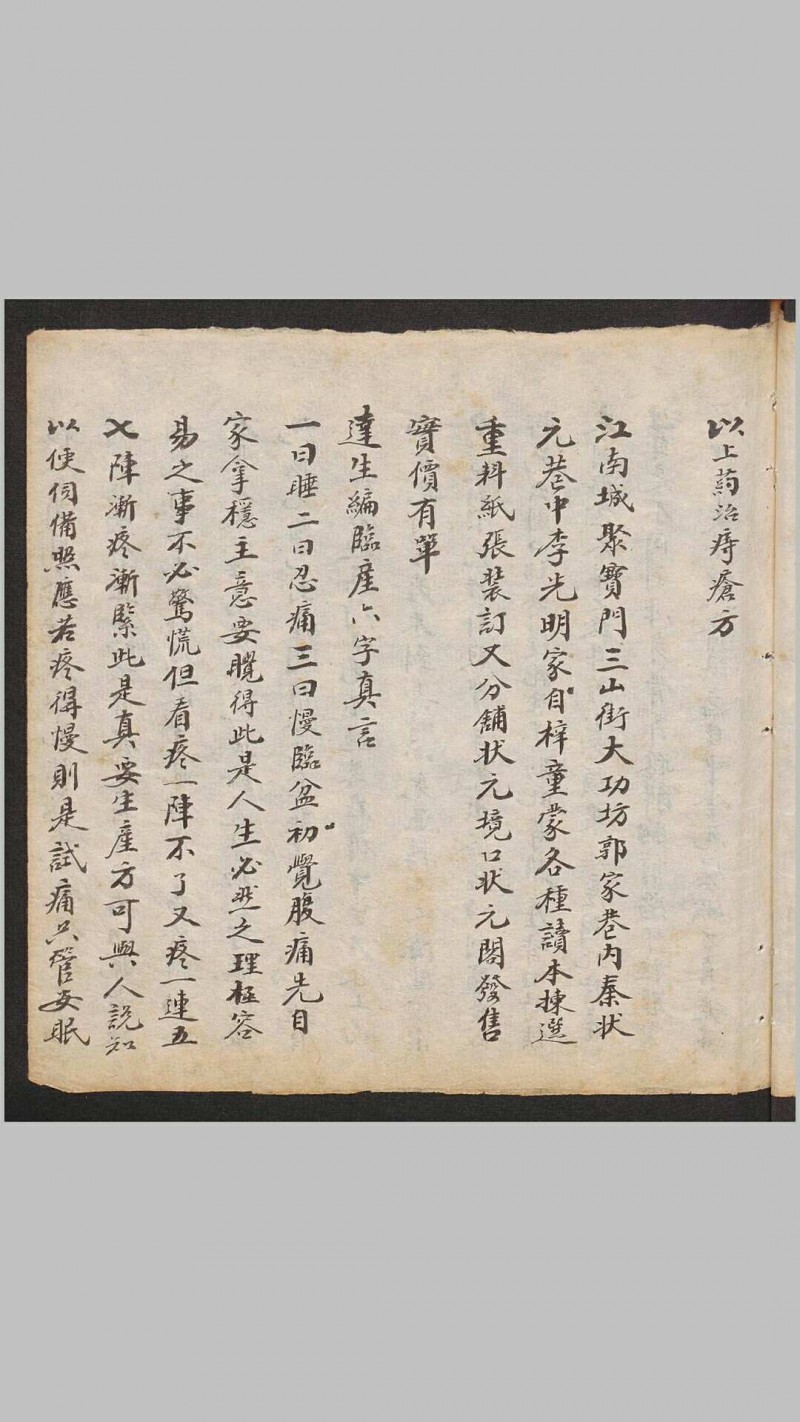 以上葯治痔瘡方
江南城聚寶門三山街大功坊郭家巷內秦狀
元巷中李光明家自梓童蒙各種讀本揀選
重料紙張裝訂又分舖狀元境口狀元閣發售
實價有單
達生編臨產六字真言
一曰睡二曰忍痛三曰慢臨盆初覺腹痛先自
家拿穩主意要曉得此是人生必然之理極容
易之事不必驚慌但看疼一陣不了又疼一連五
七陣漸疼漸緊此是真要生產方可與人說知
以便伺備照應若疼得慢則是試痛只管安眠